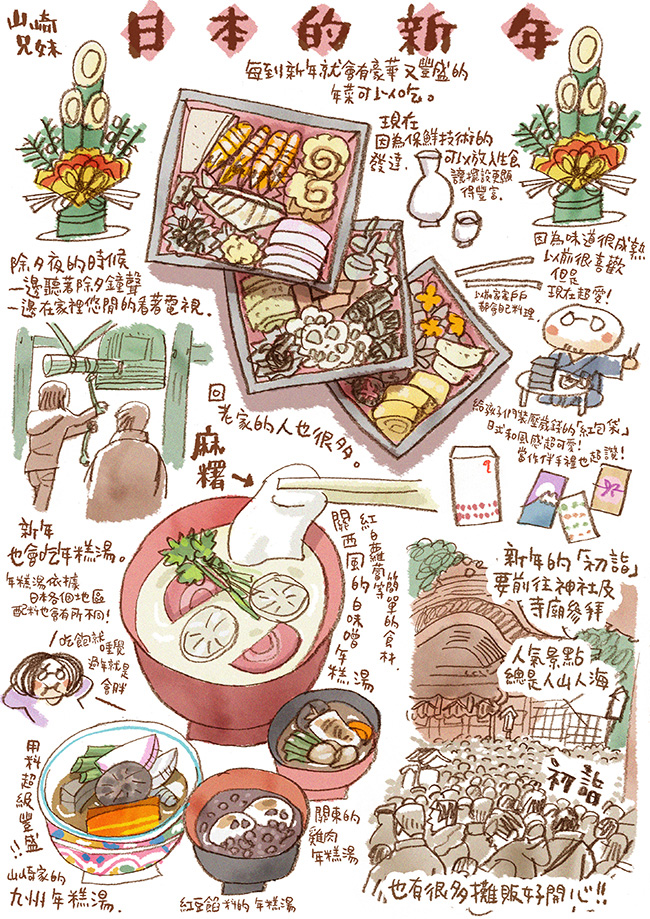 山崎
兄妹
日本的新年
每到新年就會有豪華又豐盛的
年菜可以吃。
現在
因為保鮮技術的
發達,
可以放生食
讓擺設更顯
得豐富.
因為味道很成熟
以前很喜歡
但是
現在超愛!
以前家家戶戶
都會自己料理.
除夕夜的時候
一邊聽著除夕鐘聲
一邊在家裡悠閒的看著電視.
回
老家的人也很多。
給孩子們裝壓歲錢的「紅包袋」
日式和風感超可愛!
當作伴手禮也超讚!
麻糬→
新年
也會吃年糕湯。
年糕湯依據
日本各個地區
配料也會有所不同!
紅白蘿蔔等
簡單的食材.
關西風的白味噌
年糕湯
新年的「初詣」
要前往神社及
寺廟參拜
人氣景點
總是人山人海
初詣
也有很多攤販好開心!!
吃飽就
睡覺
過年就是
會胖
用料超級豐盛!!
山崎家的
九州年糕湯.
紅豆餡料的年糕湯
關東的
雞肉
年糕湯